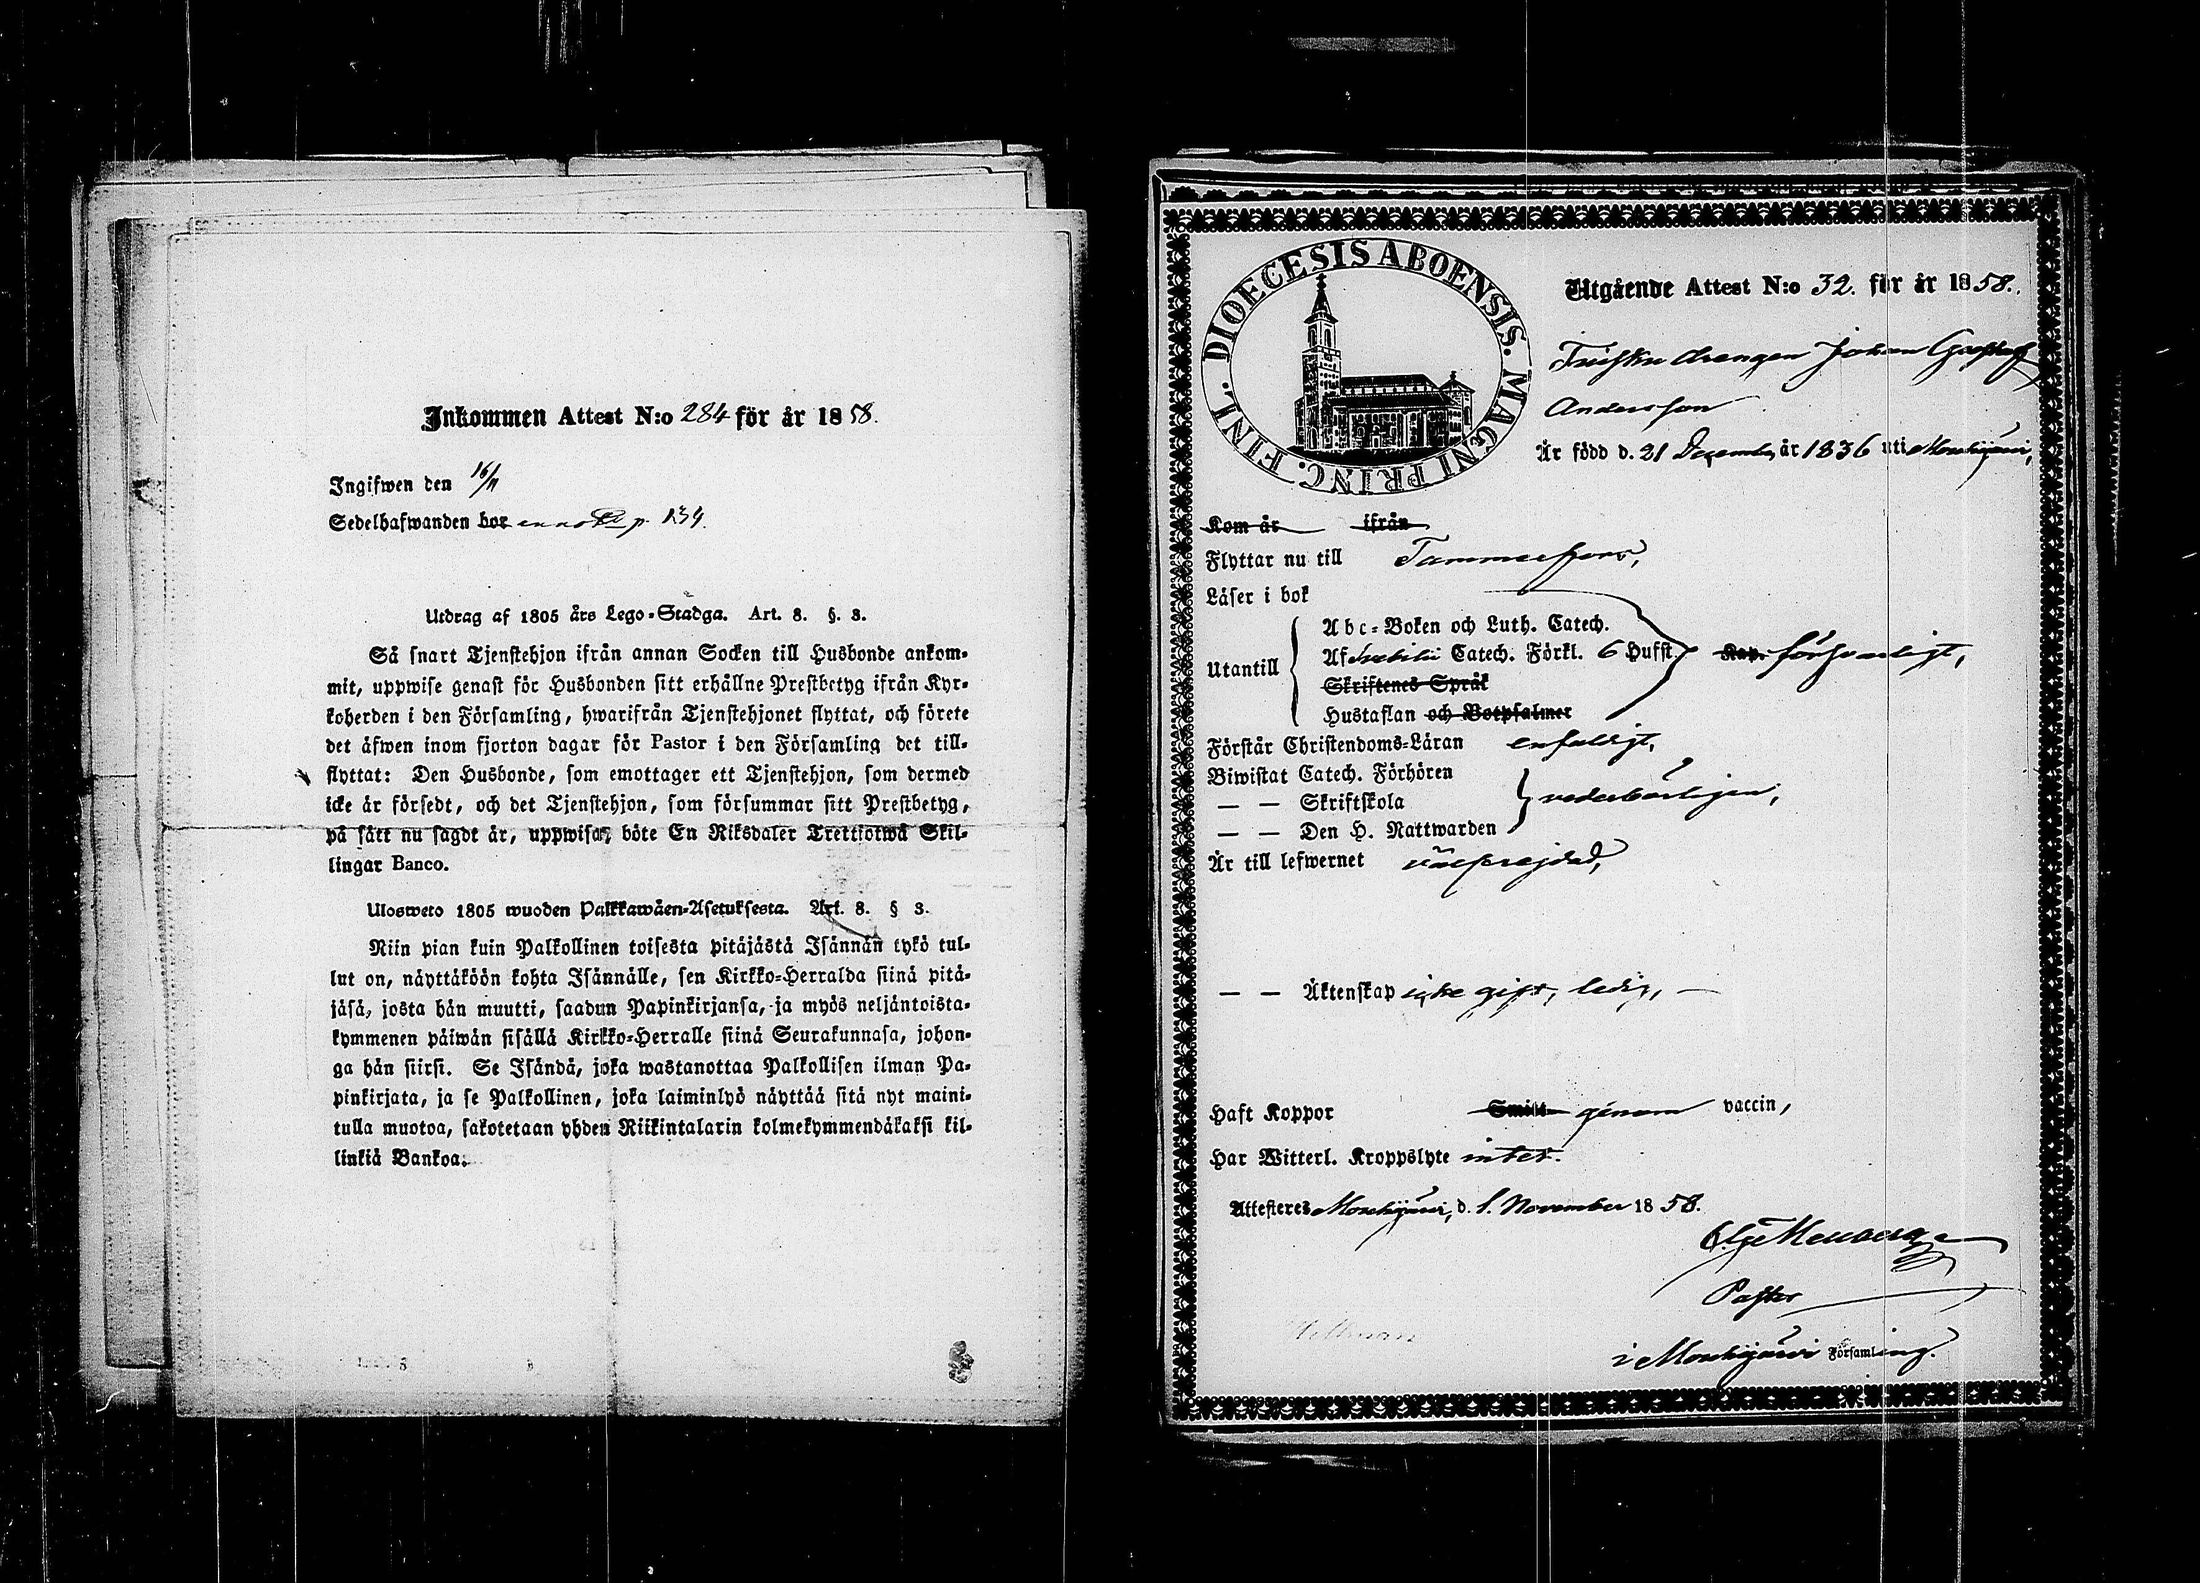 Inkommen Attest N:o 284 för år 1858.
Ingifwen den 16/11
Sedelhafwanden bor p. 134.
Utdrag af 1805 års Lego-Stadga. Art. 8. §. 3.
Så snart Tjenstehjon ifrån annan Socken till Husbonde ankom-
mit, uppwise genast för Husbonden sitt erhållne Prestbetyg ifrån Kyr-
koherden i den Församling, hwarifrån Tjenstehjonet flyttat, och förete
det äfwen inom fjorton dagar för Pastor i den Församling det till-
flyttat: Den Husbonde, som emottager ett Tjenstehjon, som dermed
icke är försedt, och det Tjenstehjon, som försummar sitt Prestbetyg,
på sätt nu sagdt är, uppwisa, böte En Riksdaler Trettiotwå Skil-
lingar Banco.
Ulosweto 1805 wuoden Palkkawäen-Asetuksesta. Art. 8. § 3.
Niin pian kuin Palkollinen toisesta pitäjästä Isännän tykö tul-
lut on, näyttäköön kohta Isännälle, sen Kirkko-Herralda siinä pitä-
jäsä, josta hän muutti, saadun Papinkirjansa, ja myös neljäntoista-
kymmenen päiwän sisällä Kirkko-Herralle siinä Seurakunnasa, johon-
ga hän siirsi. Se Isändä, joka wastanottaa Palkollisen ilman Pa-
pinkirjata, ja se Palkollinen, joka laiminlyö näyttää sitä nyt maini-
tulla muotoa, sakotetaan yhden Riikintalarin kolmekymmendäkaksi kil-
linkiä Bankoa.
DIOECESIS ABOENSIS. MAGNI PRINC. FINL.
Utgående Attest N:o 32. för år 1858.
drengen Johan Gustaf
Andersson
Är född d. 21 December år 1836 uti Mouhijärvi,
Kom år ifrån
Flyttar nu till Tammerfors,
Läser i bok
Abc-Boken och Luth. Catech.
Utantill Af Svebilii Catech. Förkl. 6 Hufst Kap. försvarligt,
Skriftenes Språk
Hustaflan och Botpsalmer
Förstår Christendoms-Läran enfaldigt,
Biwistat Catech. Förhören
— — Skriftskola vederbörligen,
— — Den H. Nattwarden
Är till lefwernet välfrejdad,
— — Äktenskap icke gift, ledig, —
Haft Koppor Smitt genom vaccin,
Har Witterl. Kroppslyte intet.
Attesteres Mouhijärvi, d. 1. November 1858.
Pastor
i Mouhijärvi Församling.